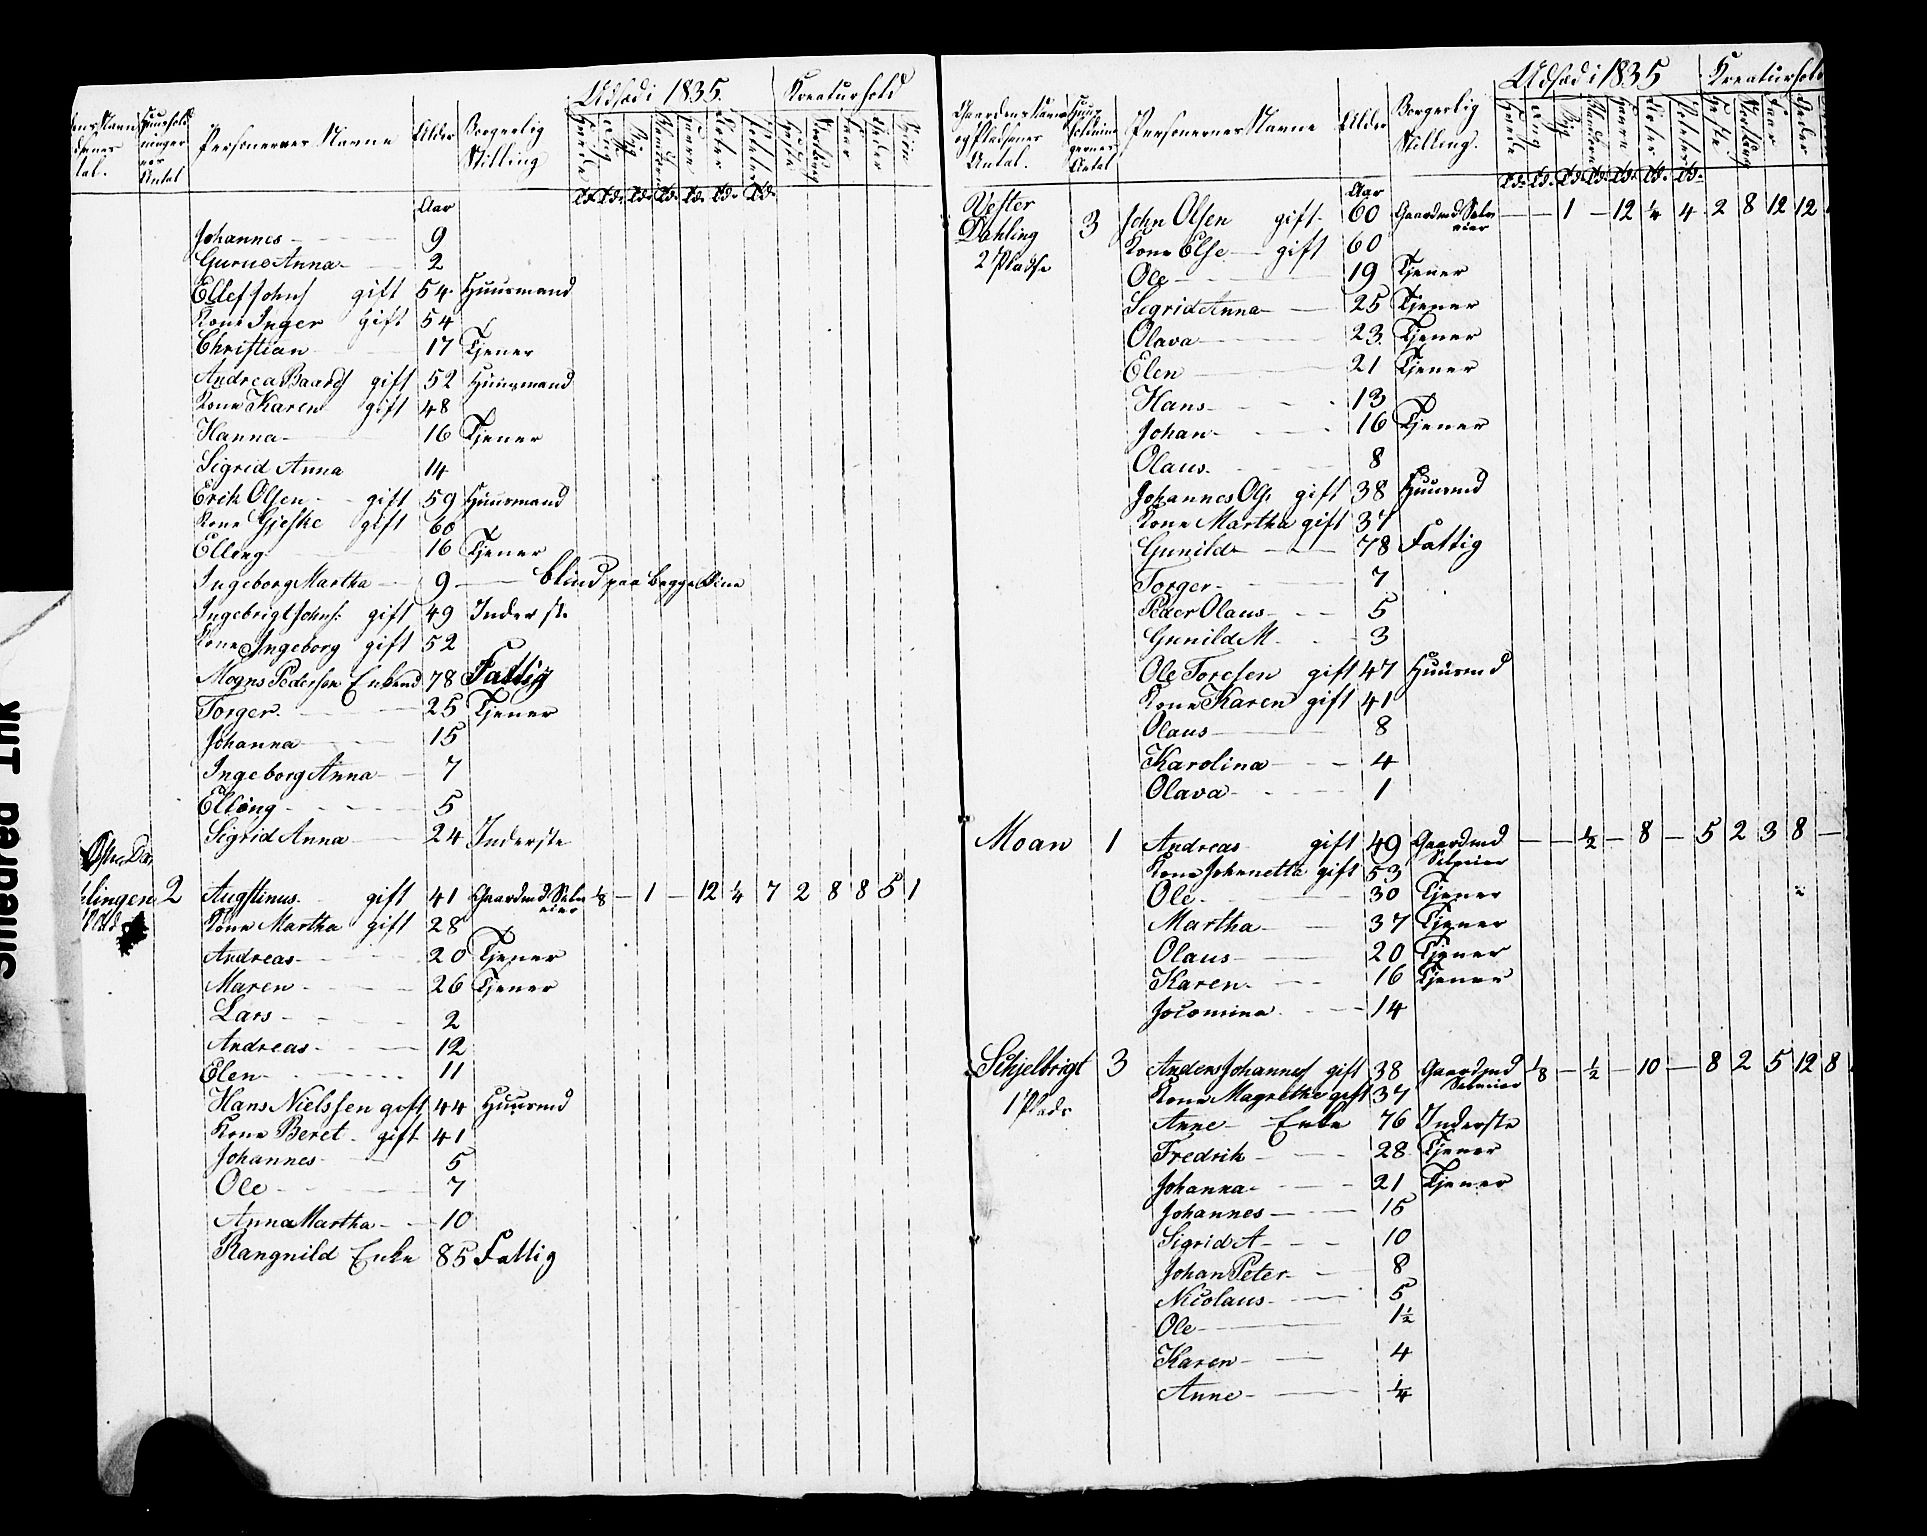 Udsæd i 1835. Kreaturhold
Personernes Navne Alder Borgerlig Stilling
Antal
Aar
Johannes 9
Guruo Anna 2
Ellef Johns gift 54 Huusmand
Kone Inger gift 54
Christian 17 Tjener
Andrea Baards gift 52 Huusmand
Kone Karen gift 48
Hanna 16 Tjener
Sigrid Anna 14
Erik Olsen gift 59 Huusmand
Kone Gjeske gift 60
Elling 16 Tjener
Ingeborg Martha 9 blind paa begge Øine
Ingebrigt Johns: gift 49 Inderste
Kone Ingeborg gift 52
Mogns Pedersen Enkemd 78 Fattig
Torger 25 Tjener
Johanna 15
Ingeborg Anna 7
Elling 5
Sigrid Anna 24 Inderste
Øster Da
hlingen 2 Augstinus gift 41 Gaardmd Selveier 1/8 - 1 - 12 1/4 7 2 8 8 5 1
Kone Martha gift 28
Andreas 20 Tjener
Maren 26 Tjener
Lars 2
Andreas 12
Elen 11
Hans Nielssen gift 44 Huusmd
Kone Beret gift 41
Johannes 5
Ole 7
Anna Martha 10
Rangnild Enke 85 Fattig
Udsæd i 1835 Kreaturhold
Gaardens Navn og Pladsenes Antal. Personernes Navne Alder Borgerlig Stilling.
Aar
Vester
Dahling 3 John Olsen gift 60 Gaardmd Selveier - - 1 - 12 1/4 4 2 8 12 12
2 Pladse Kone Else gift 60
Ole 19 Tjener
Sigrid Anna 25 Tjener
Olava 23 Tjener
Elen 21 Tjener
Hans 13
Johan 16 Tjener
Olaus 8
Johannes Ols. gift 38 Huusmd
Kone Martha gift 37
Gunild 78 Fattig
Torger 7
Peder Olaus 5
Gunild M. 3
Ole Toresen gift 47 Huusmd
Kone Karen gift 41
Olaus 8
Karolina 4
Olava 1
Moan 1 Andreas gift 49 Gaardmd Selveier - - 1/2 - 8 - 5 2 3 8 -
Kone Johanetta gift 53
Ole 30 Tjener
Martha 37 Tjener
Olaus 20 Tjener
Karen 16 Tjener
Jocomina 14
Schjelbrigt 3 Anders Johannes gift 38 Gaardmd Selveier 1/8 - 1/2 - 10 - 8 2 5 12 8
1 Plads Kone Magrethe gift 37
Anne Enke 76 Inderste
Fredrik 28 Tjener
Johanna 21 Tjener
Johannes 15
Sigrid A 10
Johan Peter 8
Nicolaus 5
Ole 1 1/2
Karen 4
Anne 1/4
Smeared Ink